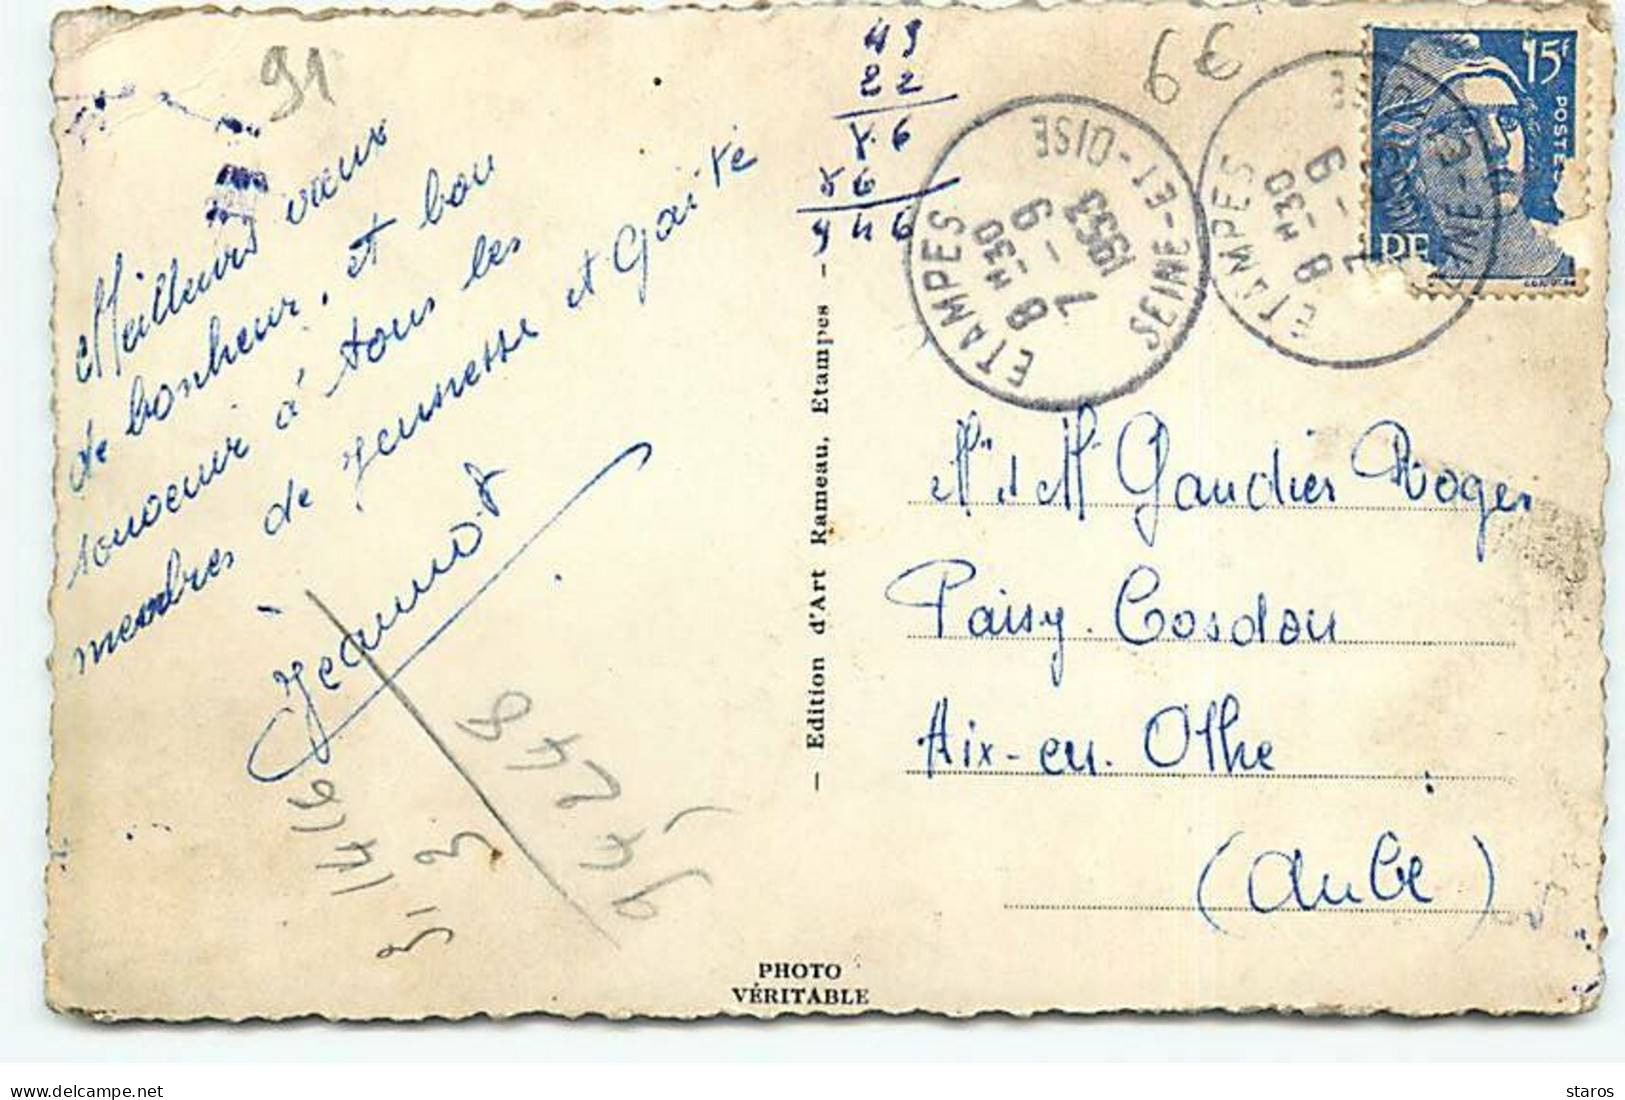 91
Meilleurs vœux
de bonheur, et bon
souvenir à tous les
membres de jeunesse et gaité
Jeannot
- Edition d'Art Rameau, Etampes -
PHOTO
VÉRITABLE
49
22
6€
ETAMPES
8 H30
7 - 9
1953
SEINE-ET-OISE
ETAMPES
8 H30
7 - 9
15F
POSTES
RF
Mr et Me Gaudier Roger
Paisy. Cosdon
Aix-en. Othe
(Aube)
staros